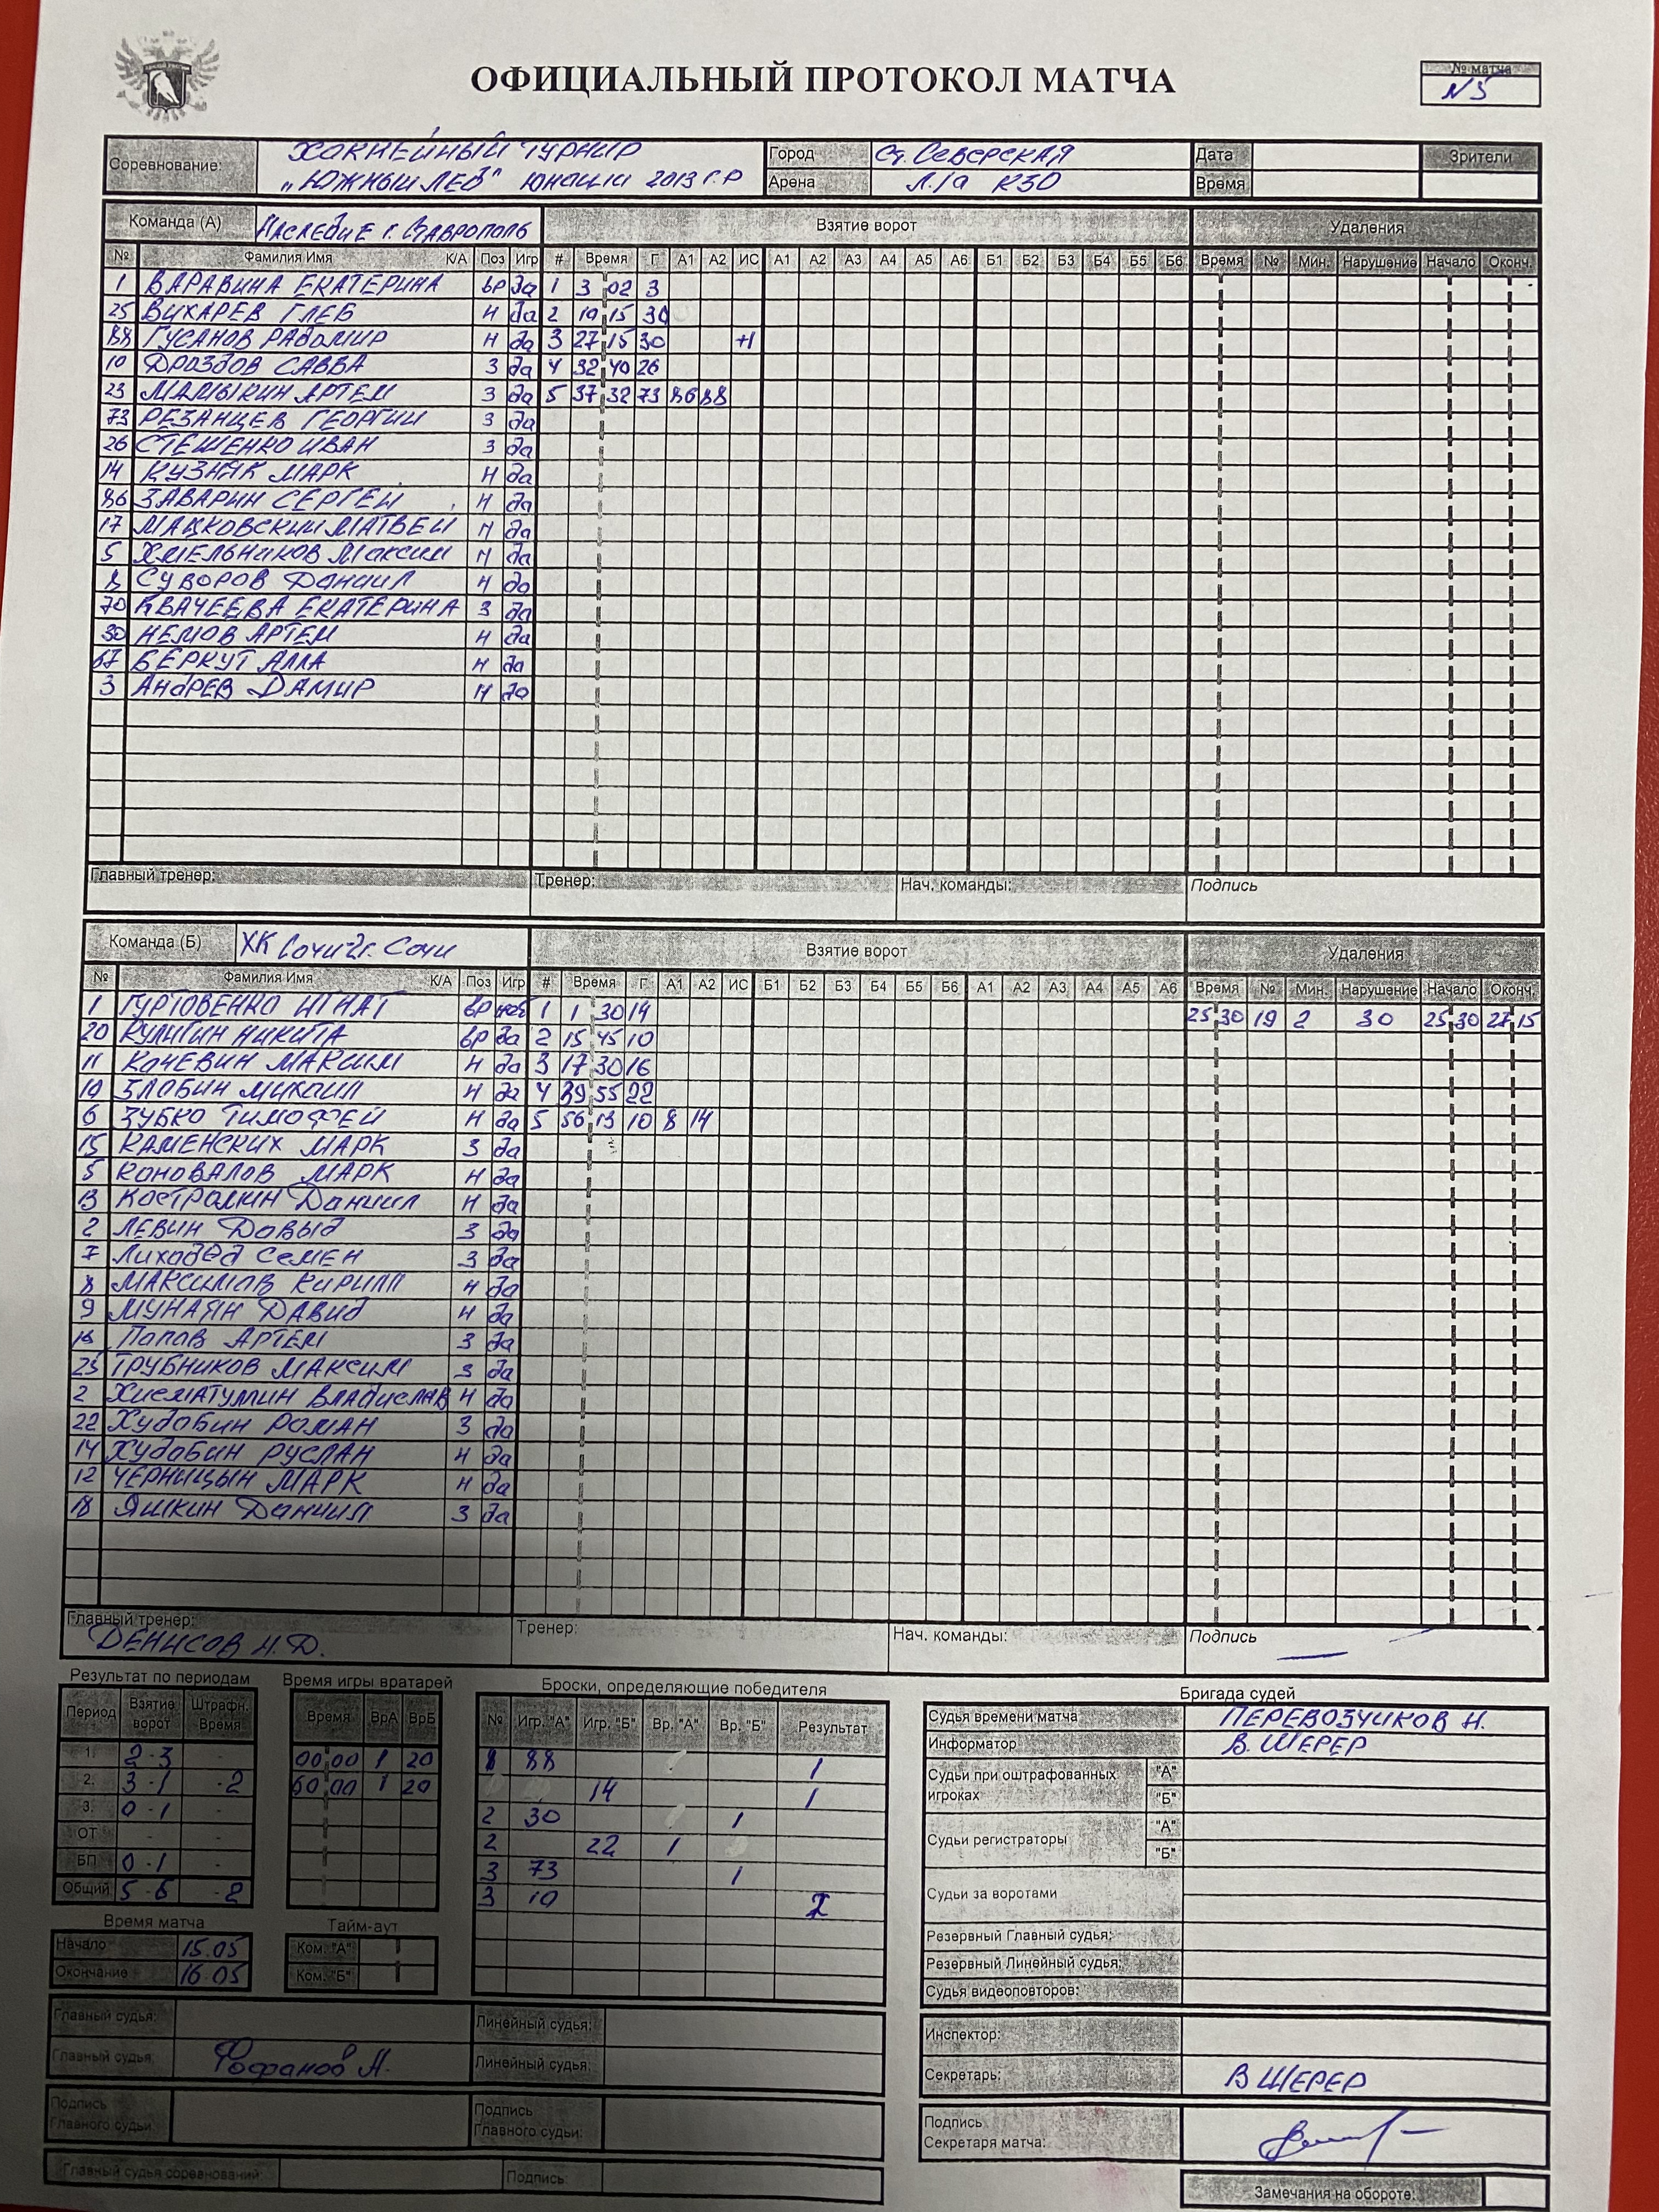 ОФИЦИАЛЬНЫЙ ПРОТОКОЛ МАТЧА
№ матча
N5
Соревнование: ХОККЕЙНЫЙ ТУРНИР
"ЮЖНЫЙ ЛЕВ" ЮНОШИ 2013 Г.Р
Город Ст. СЕВЕРСКАЯ
Арена Л/а
Дата
Время
Зрители
Команда (А) НАСЛЕДИЕ г. СТАВРОПОЛЬ Взятие ворот Удаления
№ Фамилия Имя К/А Поз Игр # Время Г А1 А2 ИС А1 А2 А3 А4 А5 А6 Б1 Б2 Б3 Б4 Б5 Б6 Время № Мин. Нарушение Начало Оконч.
1 ВАРАВИНА ЕКАТЕРИНА вр да 1 3 02 3
25 ВИХАРЕВ ГЛЕБ Н да 2 19 15 30
88 ГУСАНОВ РАДОМИР Н да 3 27 15 30 +1
10 ДРОЗДОВ САВВА З да 4 32 40 26
23 МАМЫКИН АРТЕМ З да 5 37 32 73 86 88
73 РЕЗАНЦЕВ ГЕОРГИЙ З да
26 СТЕШЕНКО ИВАН З да
14 КУЗНЯК МАРК Н да
86 ЗАВАРИН СЕРГЕЙ Н да
17 МАЦКОВСКИЙ МАТВЕЙ Н да
5 ХМЕЛЬНИКОВ Максим Н да
8 СУВОРОВ Даниил Н да
70 КВАЧЕЕВА ЕКАТЕРИНА З да
30 НЕМОВ АРТЕМ Н да
67 БЕРКУТ АЛЛА Н да
3 АНДРЕВ ДАМИР Н да
Главный тренер: Тренер: Нач. команды: Подпись
Команда (Б) ХК Сочи-2 г. Сочи Взятие ворот Удаления
№ Фамилия Имя К/А Поз Игр # Время Г А1 А2 ИС Б1 Б2 Б3 Б4 Б5 Б6 А1 А2 А3 А4 А5 А6 Время № Мин. Нарушение Начало Оконч.
1 ГУРТОВЕНКО ИГНАТ вр 1 1 30 14 25 30 19 2 30 25 30 27 15
20 КУЛИГИН НИКИТА вр да 2 15 45 10
11 КОЧЕВИН МАКСИМ Н да 3 17 30 16
10 ЗЛОБИН МИХАИЛ Н да 4 39 55 22
6 ЗУБКО ТИМОФЕЙ Н да 5 56 13 10 8 14
15 КАМЕНСКИХ МАРК З да
5 КОНОВАЛОВ МАРК Н да
13 КОСТРОМИН Даниил Н да
2 ЛЕВИН Давыд З да
7 Лиходед СЕМЕН З да
8 МАКСИМОВ КИРИЛЛ Н да
9 МУНАЯН ДАВИД Н да
ПОПОВ АРТЕМ З да
23 ТРУБНИКОВ МАКСИМ З да
2 ХИСМАТУЛИН ВЛАДИСЛАВ Н да
22 Худобин РОМАН З да
14 Худобин РУСЛАН Н да
12 ЧЕРНИЦЫН МАРК Н да
18 ЯШКИН Даниил З да
Главный тренер: ДЕНИСОВ Н.Д. Тренер: Нач. команды: Подпись
Результат по периодам
Период Взятие ворот Штрафн. Время
1. 2-3 -
2. 3-1 -2
3. 0-1 -
ОТ - -
БП 0-1 -
Общий 5-6 -2
Время игры вратарей
Время ВрА ВрБ
00 00 1 20
60 00 1 20
Броски, определяющие победителя
№ Игр. "А" Игр. "Б" Вр. "А" Вр. "Б" Результат
1 88 1
14 1
2 30 1
2 22 1
3 73 1
3 10 2
Время матча
Начало 15.05
Окончание 16.05
Тайм-аут
Ком. "А"
Ком. "Б"
Бригада судей
Судья времени матча ПЕРЕВОЗЧИКОВ Н.
Информатор В. ШЕРЕР
Судьи при оштрафованных игроках "А"
"Б"
Судьи регистраторы "А"
"Б"
Судьи за воротами
Резервный Главный судья:
Резервный Линейный судья:
Судья видеоповторов:
Инспектор:
Секретарь: В ШЕРЕР
Подпись
Секретаря матча:
Замечания на обороте:
Главный судья: Линейный судья:
Главный судья: Фофанов А. Линейный судья:
Подпись
Главного судьи:
Подпись
Главного судьи:
Главный судья соревнований: Подпись: